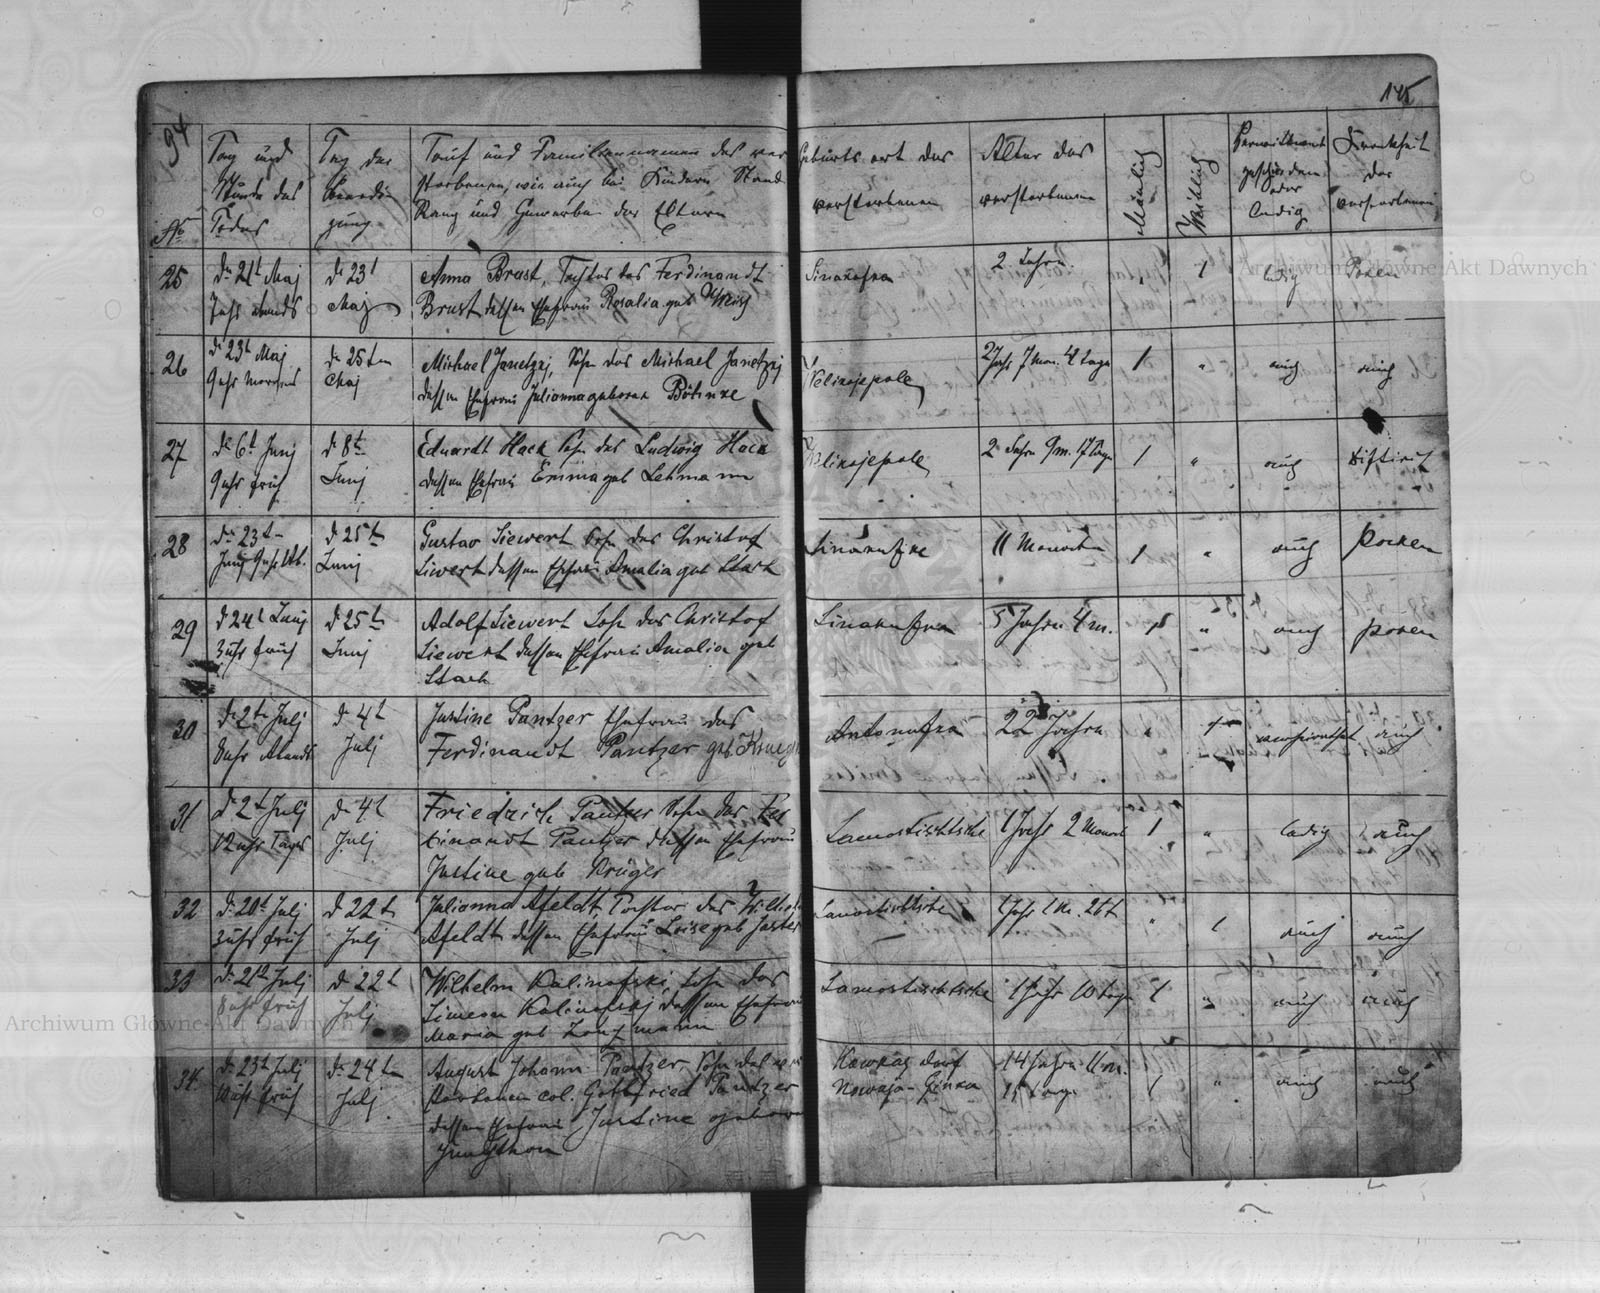 94
145
No
Tag und
Stunde des
Todes
Tag der
Beerdi
gung
Tauf und Familiennamen des ver
storbenen, wie auch bei Kindern Stand
Rang und Gewerbe der Eltern
Geburts ort des
verstorbenen
Alter des
verstorbenen
Mänlich
Weiblich
geschieden
oder
ledig
Krankheit
des
verstorbenen
25
d. 21t Maj
7 uhr abends
d 23t
Maj
Anna Brust, Tochter des Ferdinandt
Brust dessen Ehefrau Rosalia geb
2 Jahre
"
1
ledig
Poken
26
d 23t Maj
9 uhr morgens
d. 25ten
Maj
Michael Janetzej, Sohn des Michael Janetzej
dessen Ehefrau Julianna geborne
Welikojepole
2 Jahr 7 Mon. 4 tage
1
"
auch
auch
27
d 6t Junj
9 uhr früh
d. 8t
Junj
Eduardt Hack Sohn des Ludwig Hack
dessen Ehefrau Emma geb Lehmann
Welikojepole
2 Jahre 9 m. 17 tage
1
"
auch
Diftirit
28
d. 23t
Junj
d 25t
Junj
Gustav Siewert Sohn des Christof
Siwert dessen Ehefrau Amalia geb Stark
11 Monate
1
"
auch
Pocken
29
d 24t Junj
3 uhr früh
d 25t
Junj
Adolf Siewert Sohn des Christof
Siewert dessen Ehefrau Amalia geb
Stark
5 Jahre 4 m.
1
"
auch
poken
30
d 2t Julj
8 uhr Abends
d 4t
Julj
Justine Pantzer Ehefrau des
Ferdinandt Pantzer geb
22 Jahre
"
1
verheirathet
auch
31
d 2t Julj
12 uhr Tages
d 4t
Julj
Friedrich Pantzer Sohn des Fer
dinandt Pantzer dessen Ehefrau
Justine geb Krüger
Lamostischtsche
1 Jahr 2 Monat
1
"
ledig
auch
32
d. 20t Julj
3 uhr früh
d 22t
Julj
Julianna Afeldt, Tochter des
Afeldt dessen Ehefrau Loise geb
Lamostischtsche
1 Jahr 1 M. 26 t
"
1
auch
auch
33
d. 21t Julj
8 uhr früh
d 22t
Julj
Wilhelm Kalinofski, Sohn des
Simeon Kalinofskj dessen Ehefrau
Maria geb
Lamostischtsche
1 Jahr 10 tage
1
"
auch
auch
34
d. 23t Julj
früh
d. 24ten
Julj
August Johann Pantzer, Sohn des ver
storbenen col. Gottfried Pantzer
dessen Ehefrau Justine geborne
dorf
Nowaja-
14 Jahre 11 m.
15 tage
1
"
auch
auch
Archiwum Główne Akt Dawnych
Archiwum Główne Akt Dawnych